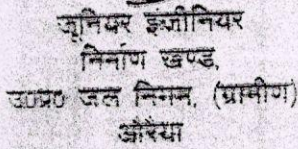 जूनियर इंजीनियर
निर्माण खण्ड,
उ०प्र० जल निगम, (ग्रामीण)
औरैया